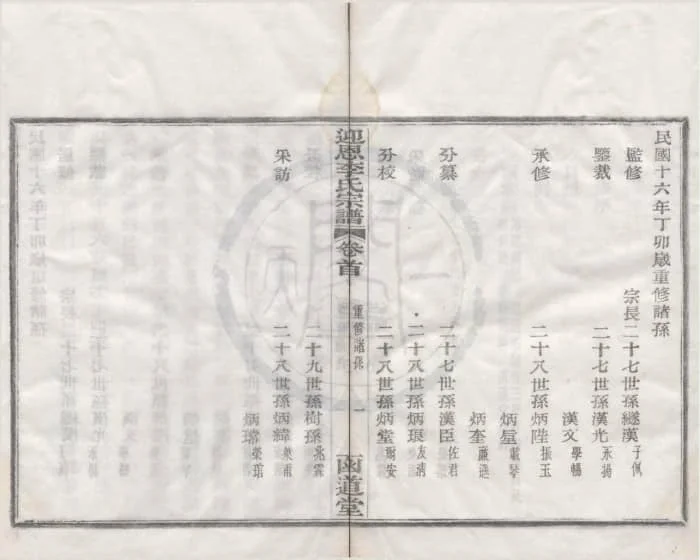 民國十六年丁卯歲重修諸孫
監修 宗長二十七世孫繼漢子佩
鑒裁 二十七世孫漢光永揚
漢文學暢
承修 二十八世孫炳陞振玉
炳星
炳奎
分纂 二十七世孫漢臣佐君
二十八世孫炳琅友淸
分校 二十八世孫炳堂
迎恩李氏宗譜 卷首 重修諸孫 一 函道堂
二十九世孫樹孫兆霖
采訪 二十八世孫炳緯
炳瑺榮琯